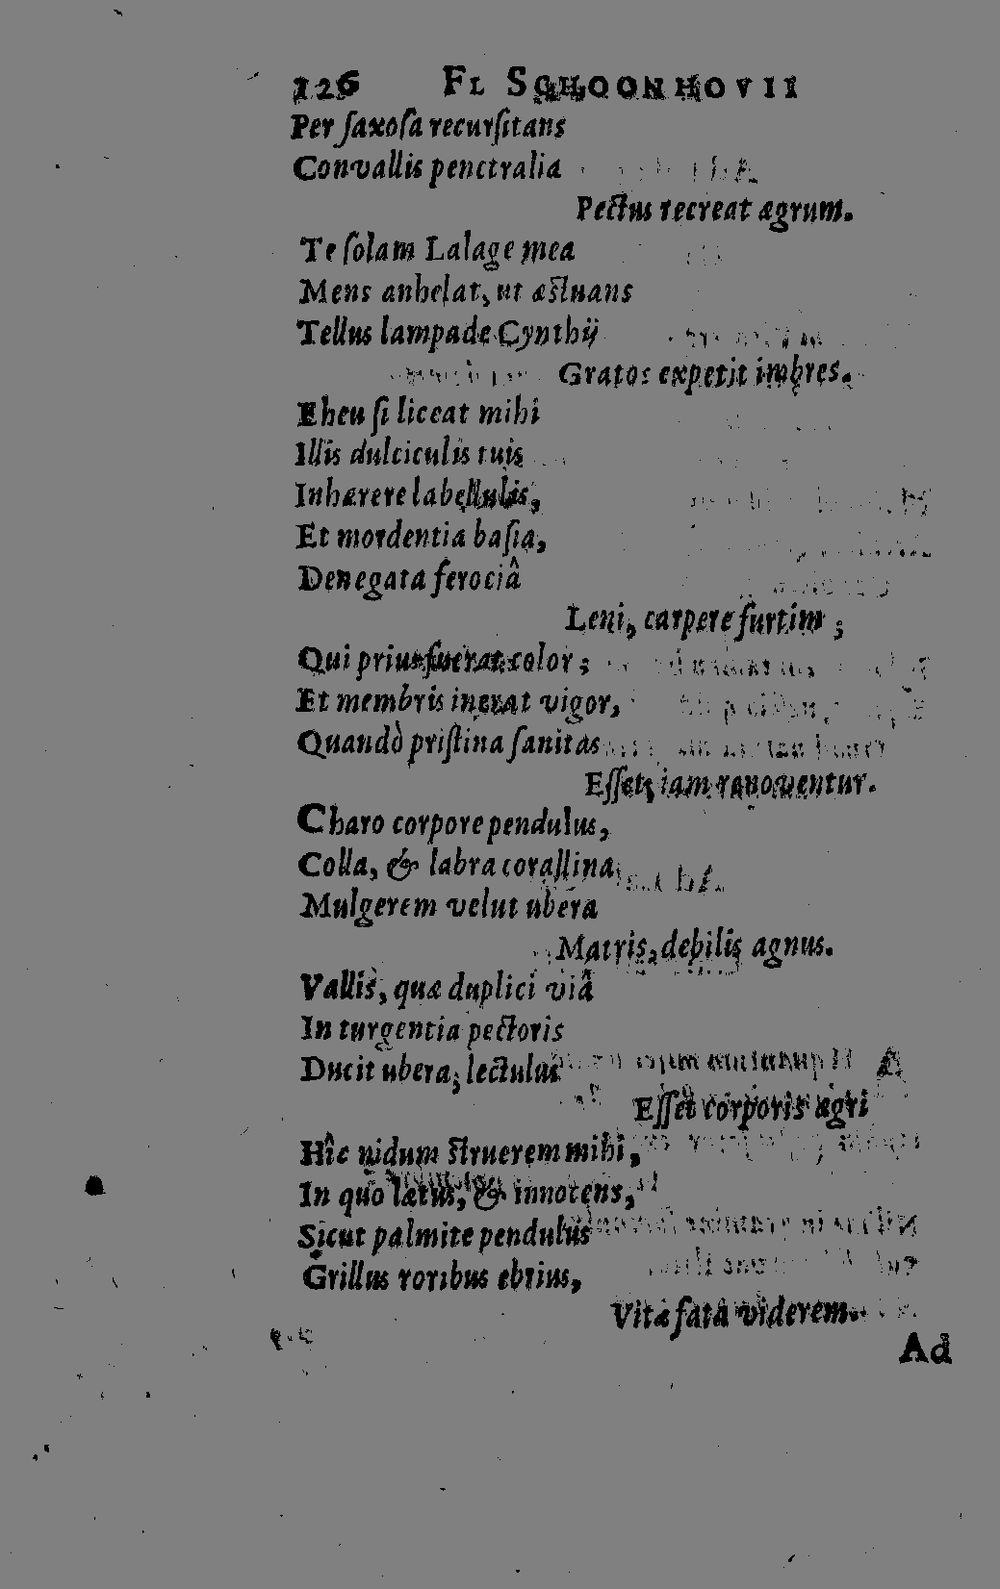 126 FL SCHOONHOVII
Per saxosa recursitans
Convallis penetralia
Pectus recreat ægrum.
Te solam Lalage mea
Mens anhelat, ut æstuans
Tellus lampade Cynthij
Gratos expetit imbres.
Eheu si liceat mihi
Illis dulciculis tuis
Inhærere labellulis,
Et mordentia basia,
Denegata ferociâ
Leni, carpere furtim ;
Qui prius fuerat color ;
Et membris inerat vigor,
Quandò pristina sanitas
Esset, iam renoventur.
Charo corpore pendulus,
Colla, & labra corallina
Mulgerem velut ubera
Matris, debilis agnus.
Vallis, quæ duplici viâ
In turgentia pectoris
Ducit ubera; lectulus
Esset corporis ægri
Hîc nidum struerem mihi,
In quo lætus, & innocens,
Sicut palmite pendulus
Grillus roribus ebrius,
Vitæ fata viderem.
Ad